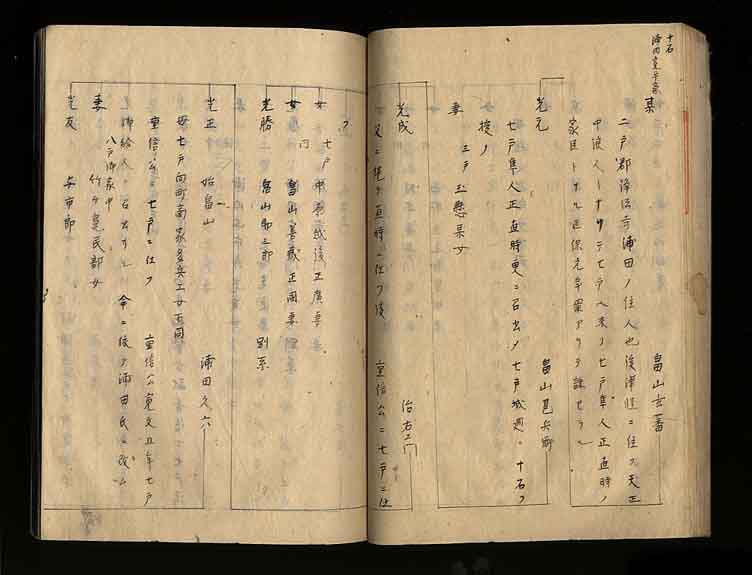 十石
浦田定平家
某
畠山玄蕃
二戸郡浄法寺浦田ノ住人也後津軽ニ住ス天正
中浪人トナリテ七戸ヘ来ノ七戸隼人正直時ノ
家臣トナル正保元年
光元
畠山邑兵衛
七戸隼人正直時更ニ召出ノ七戸城廻ニ十石ヲ
授ノ
妻
三戸玉懸某女
光成
治右エ門
父ニ継テ直時ニ仕フ後 重信公ニ七戸ニ仕
フ
女
七戸
女
畠山善蔵正周妻
光勝
畠山 別系
光正
始畠山
浦田久六
母七戸向町南家多兵エ女正同
重信公ニ七戸ニ仕フ 重信公寛文五年七戸
御給人ニ召出サル 命ニ依テ浦田氏ニ改ム
八戸御家中
妻
竹ケ 民部女
光友